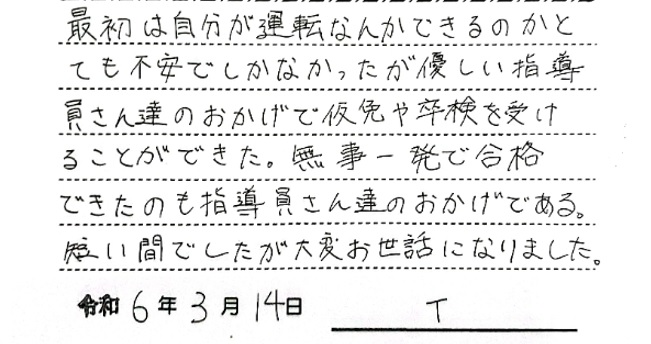 最初は自分が運転なんかできるのかと
ても不安でしかなかったが優しい指導
員さん達のおかげで仮免や卒検を受け
ることができた。無事一発で合格
できたのも指導員さん達のおかげである。
短い間でしたが大変お世話になりました。
令和6年3月14日 T